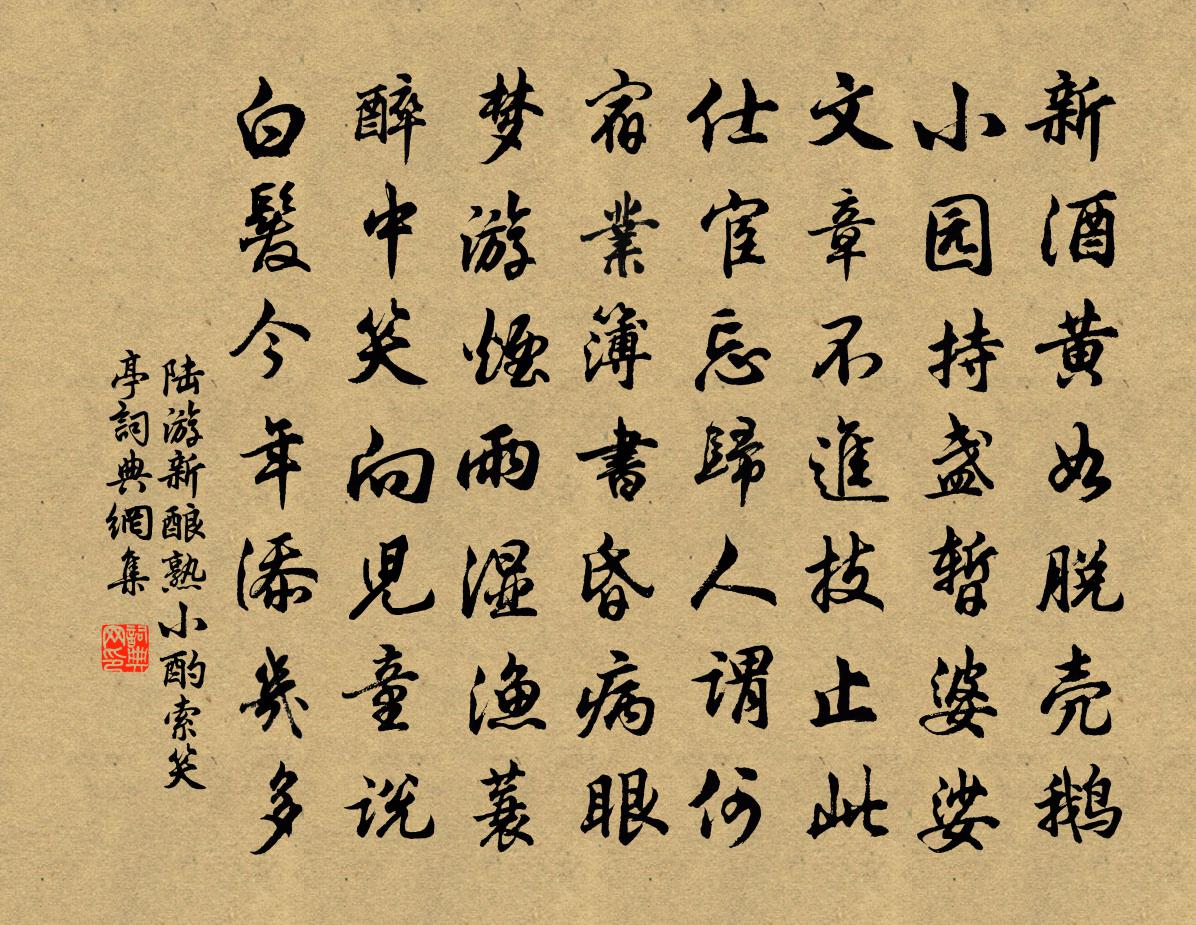 新酒黄如脱壳鹅
小园持盏暂婆娑
文章不進技止此
仕宦忘歸人謂何
宿業簿書昏病眼
梦游煙雨湿渔蓑
醉中笑向児童説
白髮今年添幾多
陆游新酿熟小酌索笑
亭詞典網集
詞典
网印